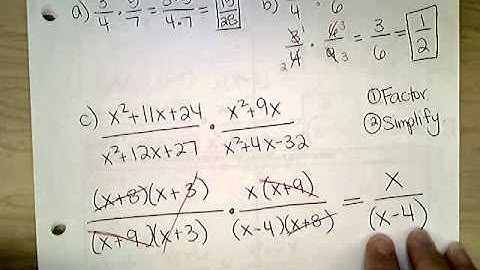 a) 3/4 · 5/7 = 3·5/4·7 = 15/28
b) 4 · 6
3/4 · 6/9 = 3/6 = 1/2
2 3 3
c) x²+11x+24/x²+12x+27 · x²+9x/x²+4x-32
① Factor
② Simplify.
(x+8)(x+3)/(x+9)(x+3) · x(x+9)/(x-4)(x+8) = x/(x-4)